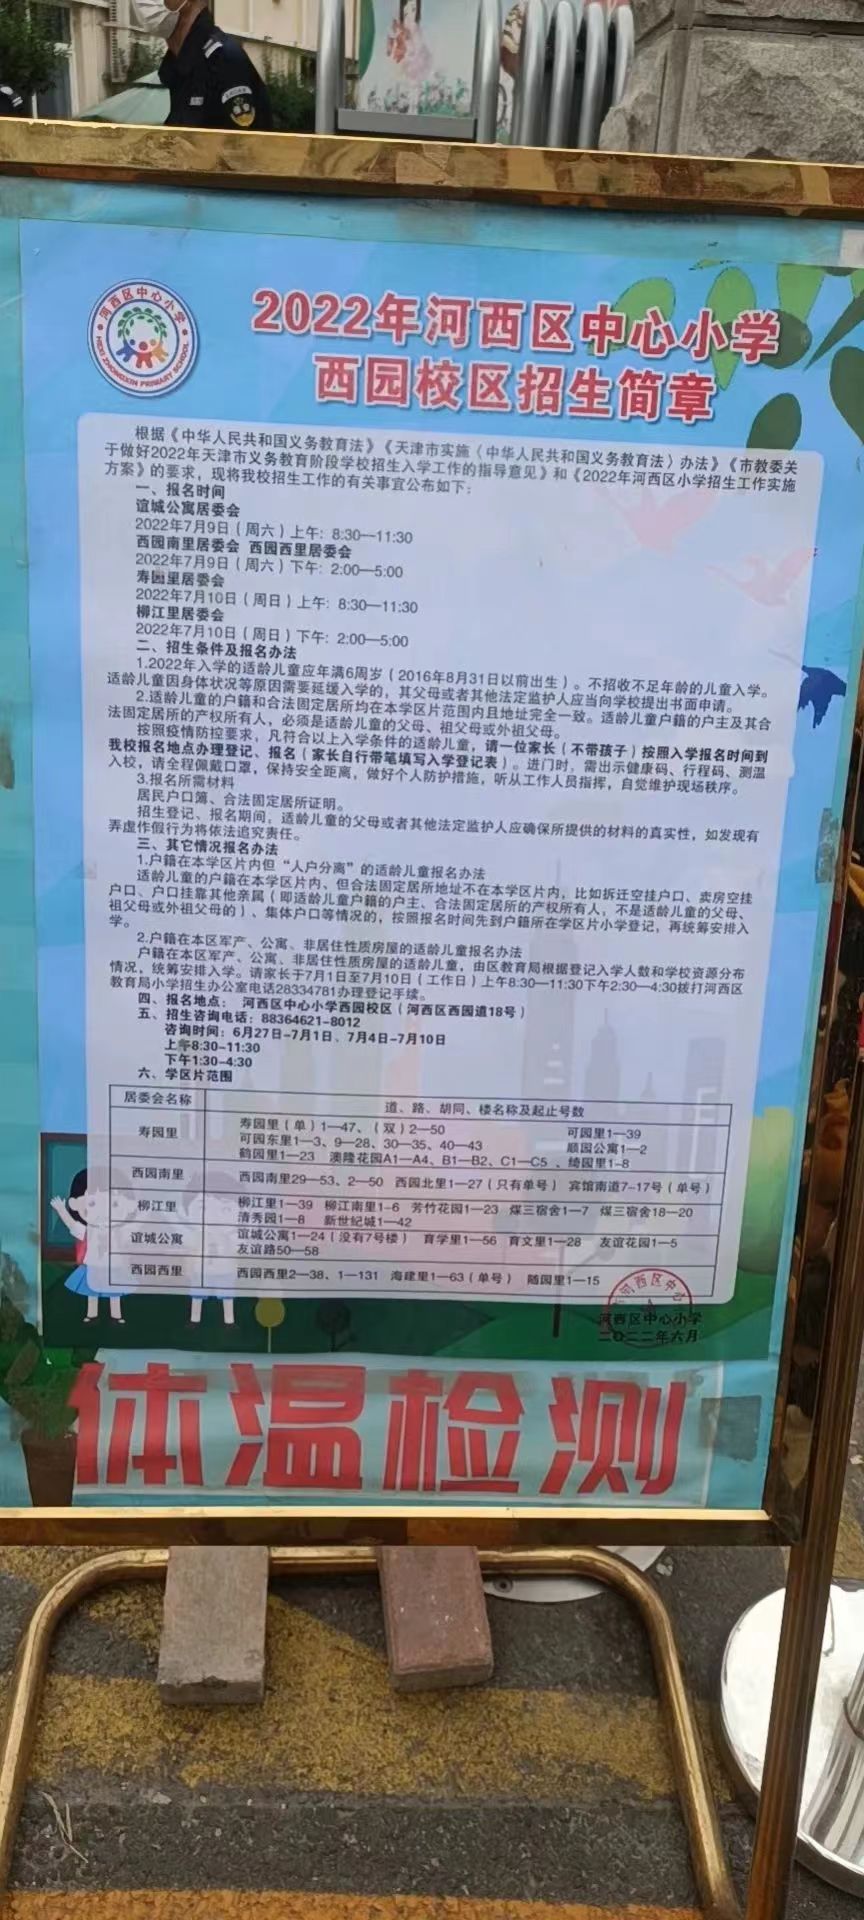 河西区中心小学
HEXI ZHONGXIN PRIMARY SCHOOL
2022年河西区中心小学
西园校区招生简章
根据《中华人民共和国义务教育法》《天津市实施〈中华人民共和国义务教育法〉办法》《市教委关
于做好2022年天津市义务教育阶段学校招生入学工作的指导意见》和《2022年河西区小学招生工作实施
方案》的要求，现将我校招生工作的有关事宜公布如下：
一、报名时间
谊城公寓居委会
2022年7月9日（周六）上午：8:30—11:30
西园南里居委会 西园西里居委会
2022年7月9日（周六）下午：2:00—5:00
寿园里居委会
2022年7月10日（周日）上午：8:30—11:30
柳江里居委会
2022年7月10日（周日）下午：2:00—5:00
二、招生条件及报名办法
1.2022年入学的适龄儿童应年满6周岁（2016年8月31日以前出生）。不招收不足年龄的儿童入学。
适龄儿童因身体状况等原因需要延缓入学的，其父母或者其他法定监护人应当向学校提出书面申请。
2.适龄儿童的户籍和合法固定居所均在本学区片范围内且地址完全一致。适龄儿童户籍的户主及其合
法固定居所的产权所有人，必须是适龄儿童的父母、祖父母或外祖父母。
按照疫情防控要求，凡符合以上入学条件的适龄儿童，请一位家长（不带孩子）按照入学报名时间到
我校报名地点办理登记、报名（家长自行带笔填写入学登记表）。进门时，需出示健康码、行程码、测温
入校，请全程佩戴口罩，保持安全距离，做好个人防护措施，听从工作人员指挥，自觉维护现场秩序。
3.报名所需材料
居民户口簿、合法固定居所证明。
招生登记、报名期间，适龄儿童的父母或者其他法定监护人应确保所提供的材料的真实性，如发现有
弄虚作假行为将依法追究责任。
三、其它情况报名办法
1.户籍在本学区片内但“人户分离”的适龄儿童报名办法
适龄儿童的户籍在本学区片内、但合法固定居所地址不在本学区片内，比如拆迁空挂户口、卖房空挂
户口、户口挂靠其他亲属（即适龄儿童户籍的户主、合法固定居所的产权所有人，不是适龄儿童的父母、
祖父母或外祖父母的）、集体户口等情况的，按照报名时间先到户籍所在学区片小学登记，再统筹安排入
学。
2.户籍在本区军产、公寓、非居住性质房屋的适龄儿童报名办法
户籍在本区军产、公寓、非居住性质房屋的适龄儿童，由区教育局根据登记入学人数和学校资源分布
情况，统筹安排入学。请家长于7月1日至7月10日（工作日）上午8:30—11:30下午2:30—4:30拨打河西区
教育局小学招生办公室电话28334781办理登记手续。
四、报名地点： 河西区中心小学西园校区（河西区西园道18号）
五、招生咨询电话：88364621-8012
咨询时间：6月27日-7月1日、7月4日-7月10日
上午8:30-11:30
下午1:30-4:30
六、学区片范围
居委会名称 道、路、胡同、楼名称及起止号数
寿园里 寿园里（单）1—47、（双）2—50 可园里1—39
可园东里1—3、9—28、30—35、40—43 顺园公寓1—2
鹤园里1—23 澳隆花园A1—A4、B1—B2、C1—C5 、绮园里1-8
西园南里 西园南里29—53、2—50 西园北里1—27（只有单号） 宾馆南道7-17号（单号）
柳江里 柳江里1—39 柳江南里1-6 芳竹花园1—23 煤三宿舍1—7 煤三宿舍18—20
清秀园1—8 新世纪城1—42
谊城公寓 谊城公寓1—24（没有7号楼） 育学里1—56 育文里1—28 友谊花园1—5
友谊路50—58
西园西里 西园西里2—38、1—131 海建里1—63（单号） 随园里1—15
河西区中心小学
二〇二二年六月
体温检测